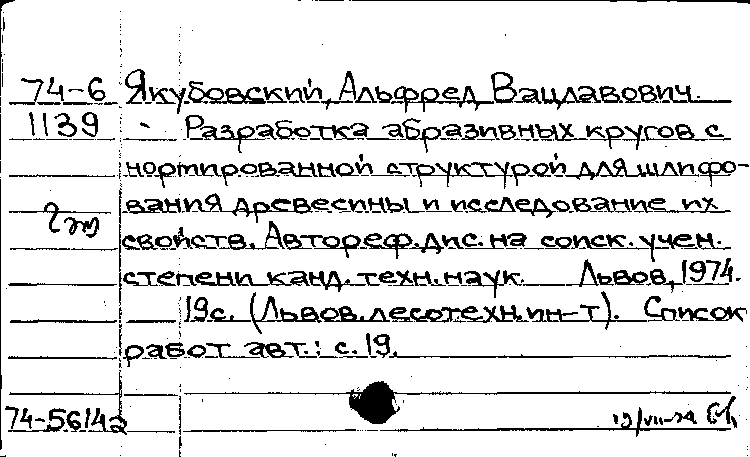 74-6 Якубовский, Альфред Вацлавович.
1139 Разработка абразивных кругов с
нормированной структурой для шлифо-
вания древесины и исследование их
свойств. Автореф. дис. на соиск. учен.
степени канд. техн. наук. Львов, 1974.
19с. (Львов. лесотехн. ин-т). Список
работ авт.: с. 19.
74-5614а